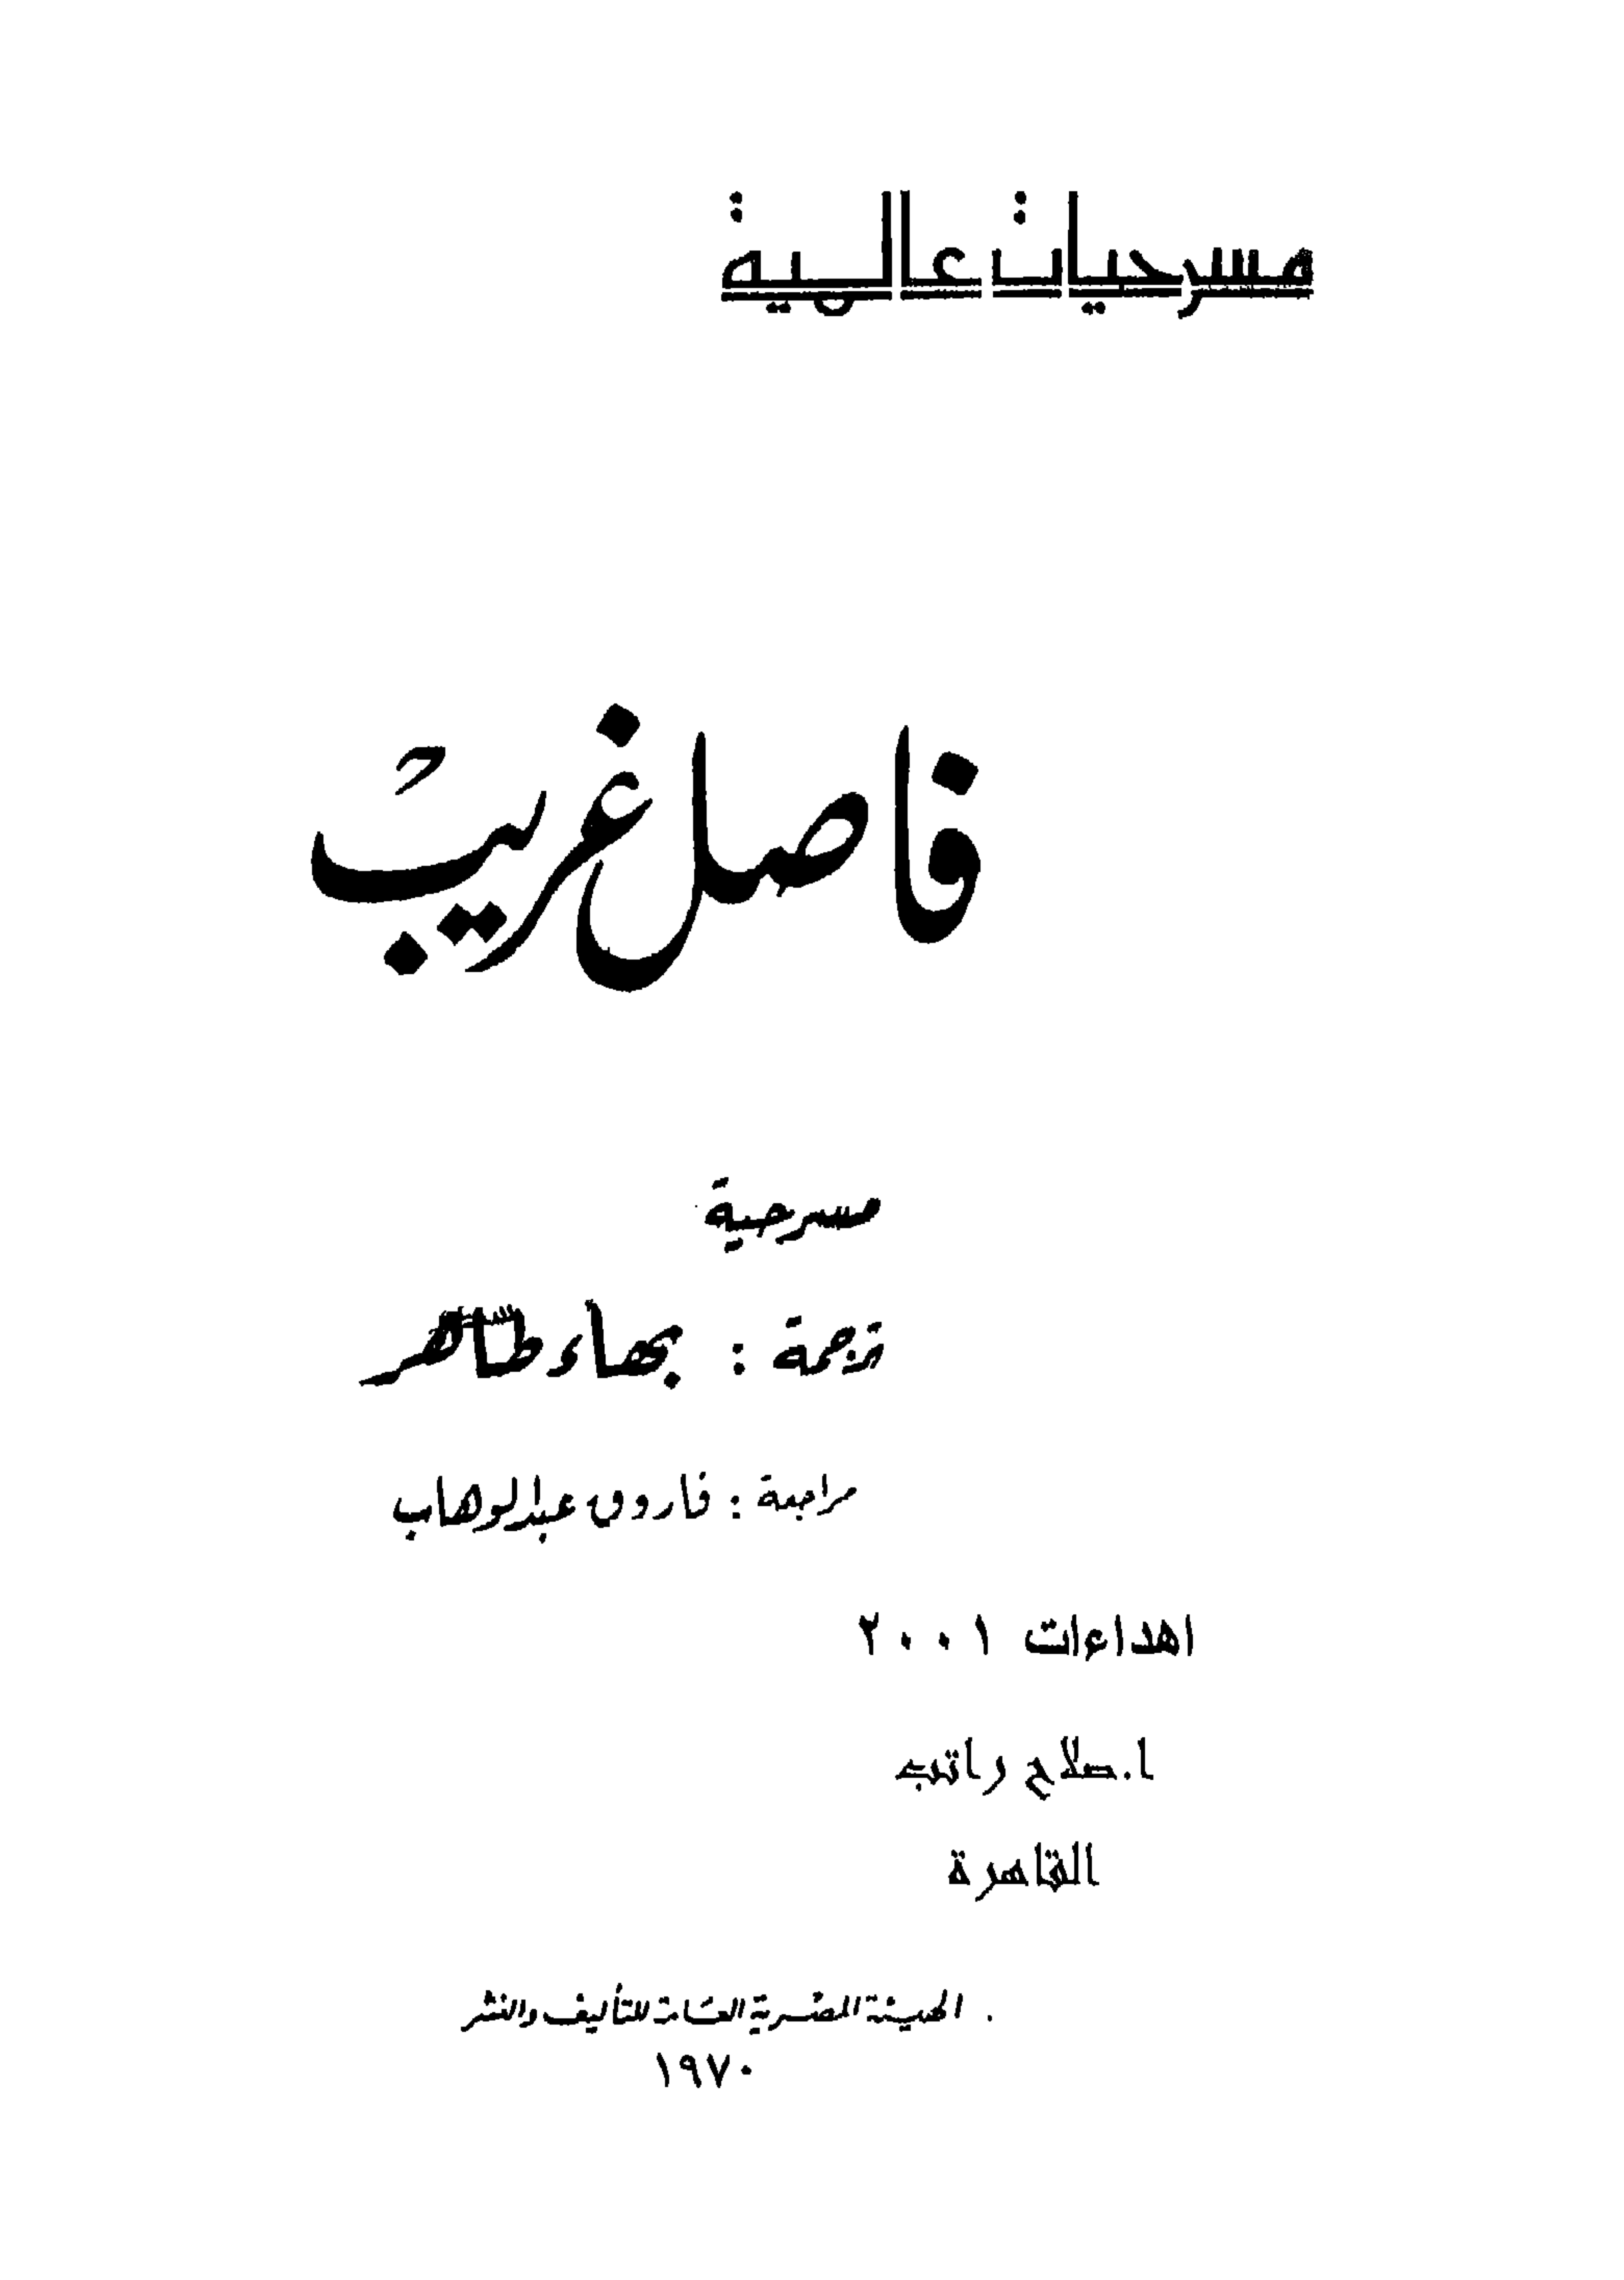 مسرحيات عالمية
فاصل غريب
مسرحية
ترجمة : بهاء طاهر
مراجعة : فاروق عبد الوهاب
اهداءات ٢٠٠١
ا. صلاح راتب
القاهرة
الهيئة المصرية العامة للتأليف والنشر
١٩٧٠